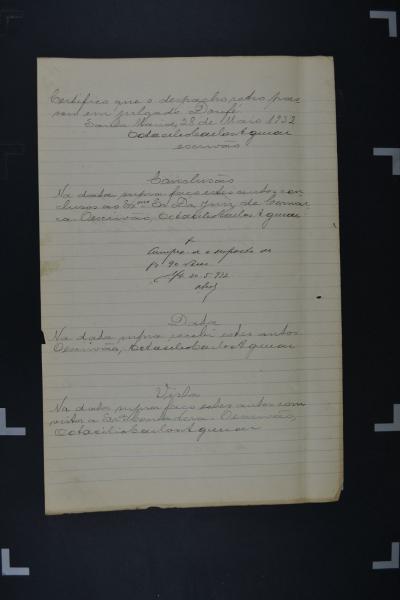 Certifico que o despacho retro pas
sou em julgado. Doufé.
Santa Maria, 28 de Maio 1932
Octacilio Carlos Aguiar
escrivão
Conclusão
Na data supra faço estes autos con
clusos ao Exmo Sr. Dr. Juiz de Comar
ca. Oescrivão, Octacilio Carlos Aguiar
Cumpra-se o
fs 90
5-932
Data
Na data supra recebi estes autos.
Oescrivão, Octacilio Carlos Aguiar
Vista
Na data supra faço estes autos com
vista a Oescrivão,
Octacilio Carlos Aguiar